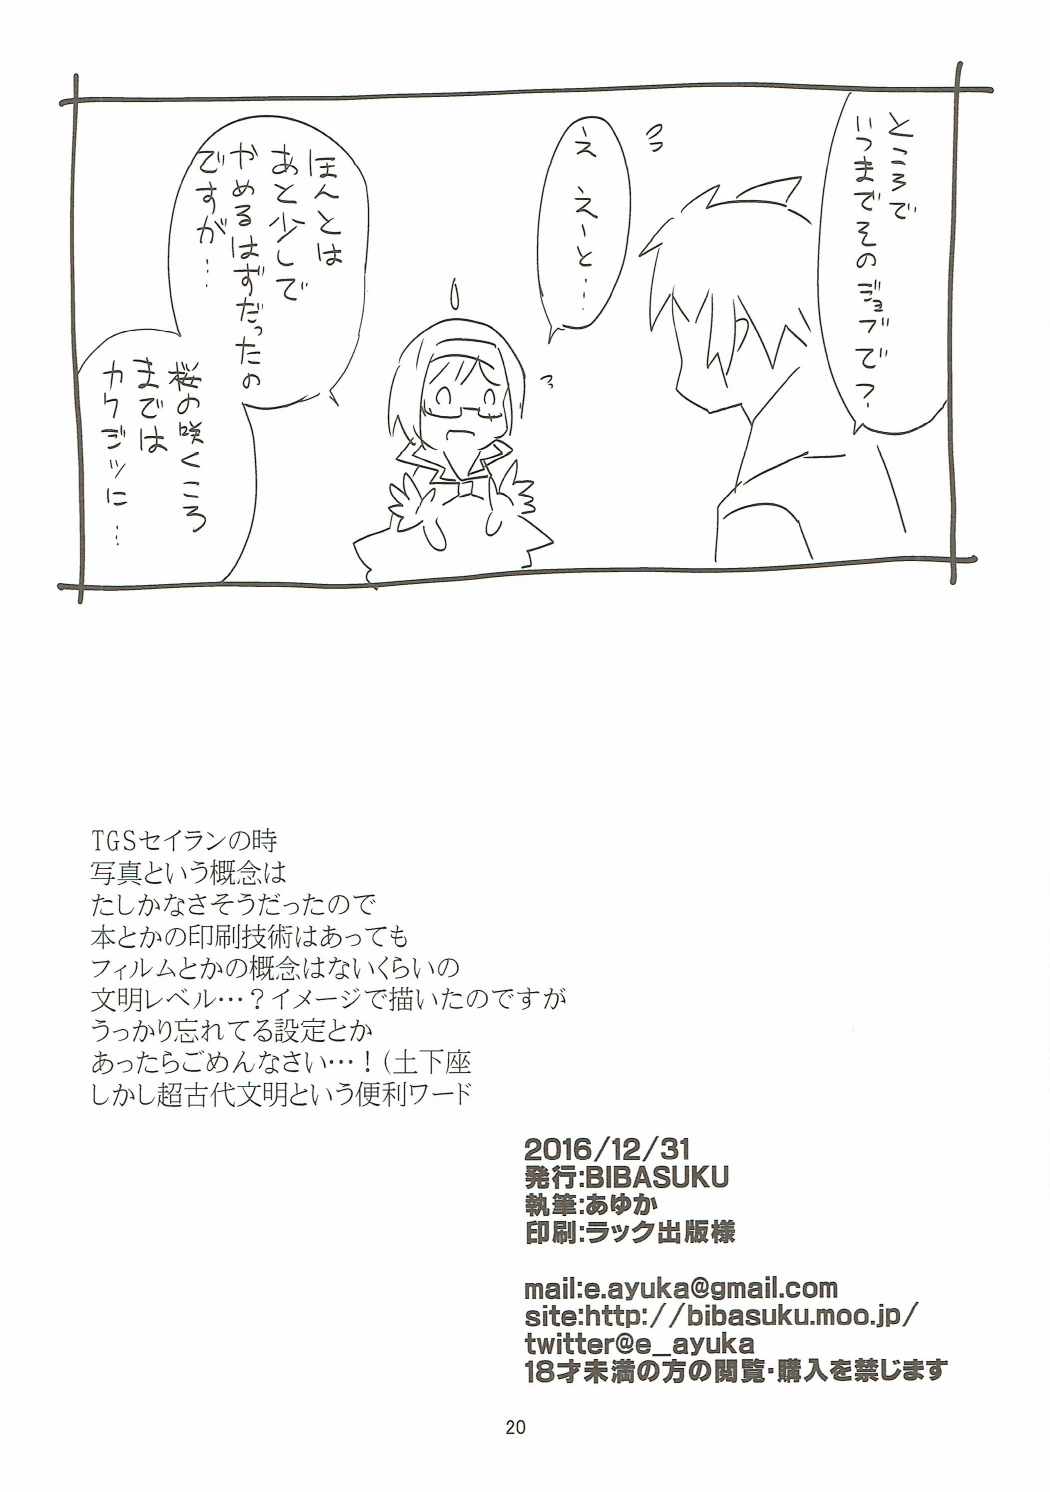 ところで
いつまでそのジョブで?
え えーと…
ほんとは
あと少しで
やめるはずだったの
ですが…
桜の咲くころ
までは
カクジツに…
TGSセイランの時
写真という概念は
たしかなさそうだったので
本とかの印刷技術はあっても
フィルムとかの概念はないくらいの
文明レベル…？イメージで描いたのですが
うっかり忘れてる設定とか
あったらごめんなさい…！(土下座
しかし超古代文明という便利ワード
2016/12/31
発行:BIBASUKU
執筆:あゆか
印刷:ラック出版様
mail:e.ayuka@gmail.com
site:http://bibasuku.moo.jp/
twitter@e_ayuka
18才未満の方の閲覧・購入を禁じます
20